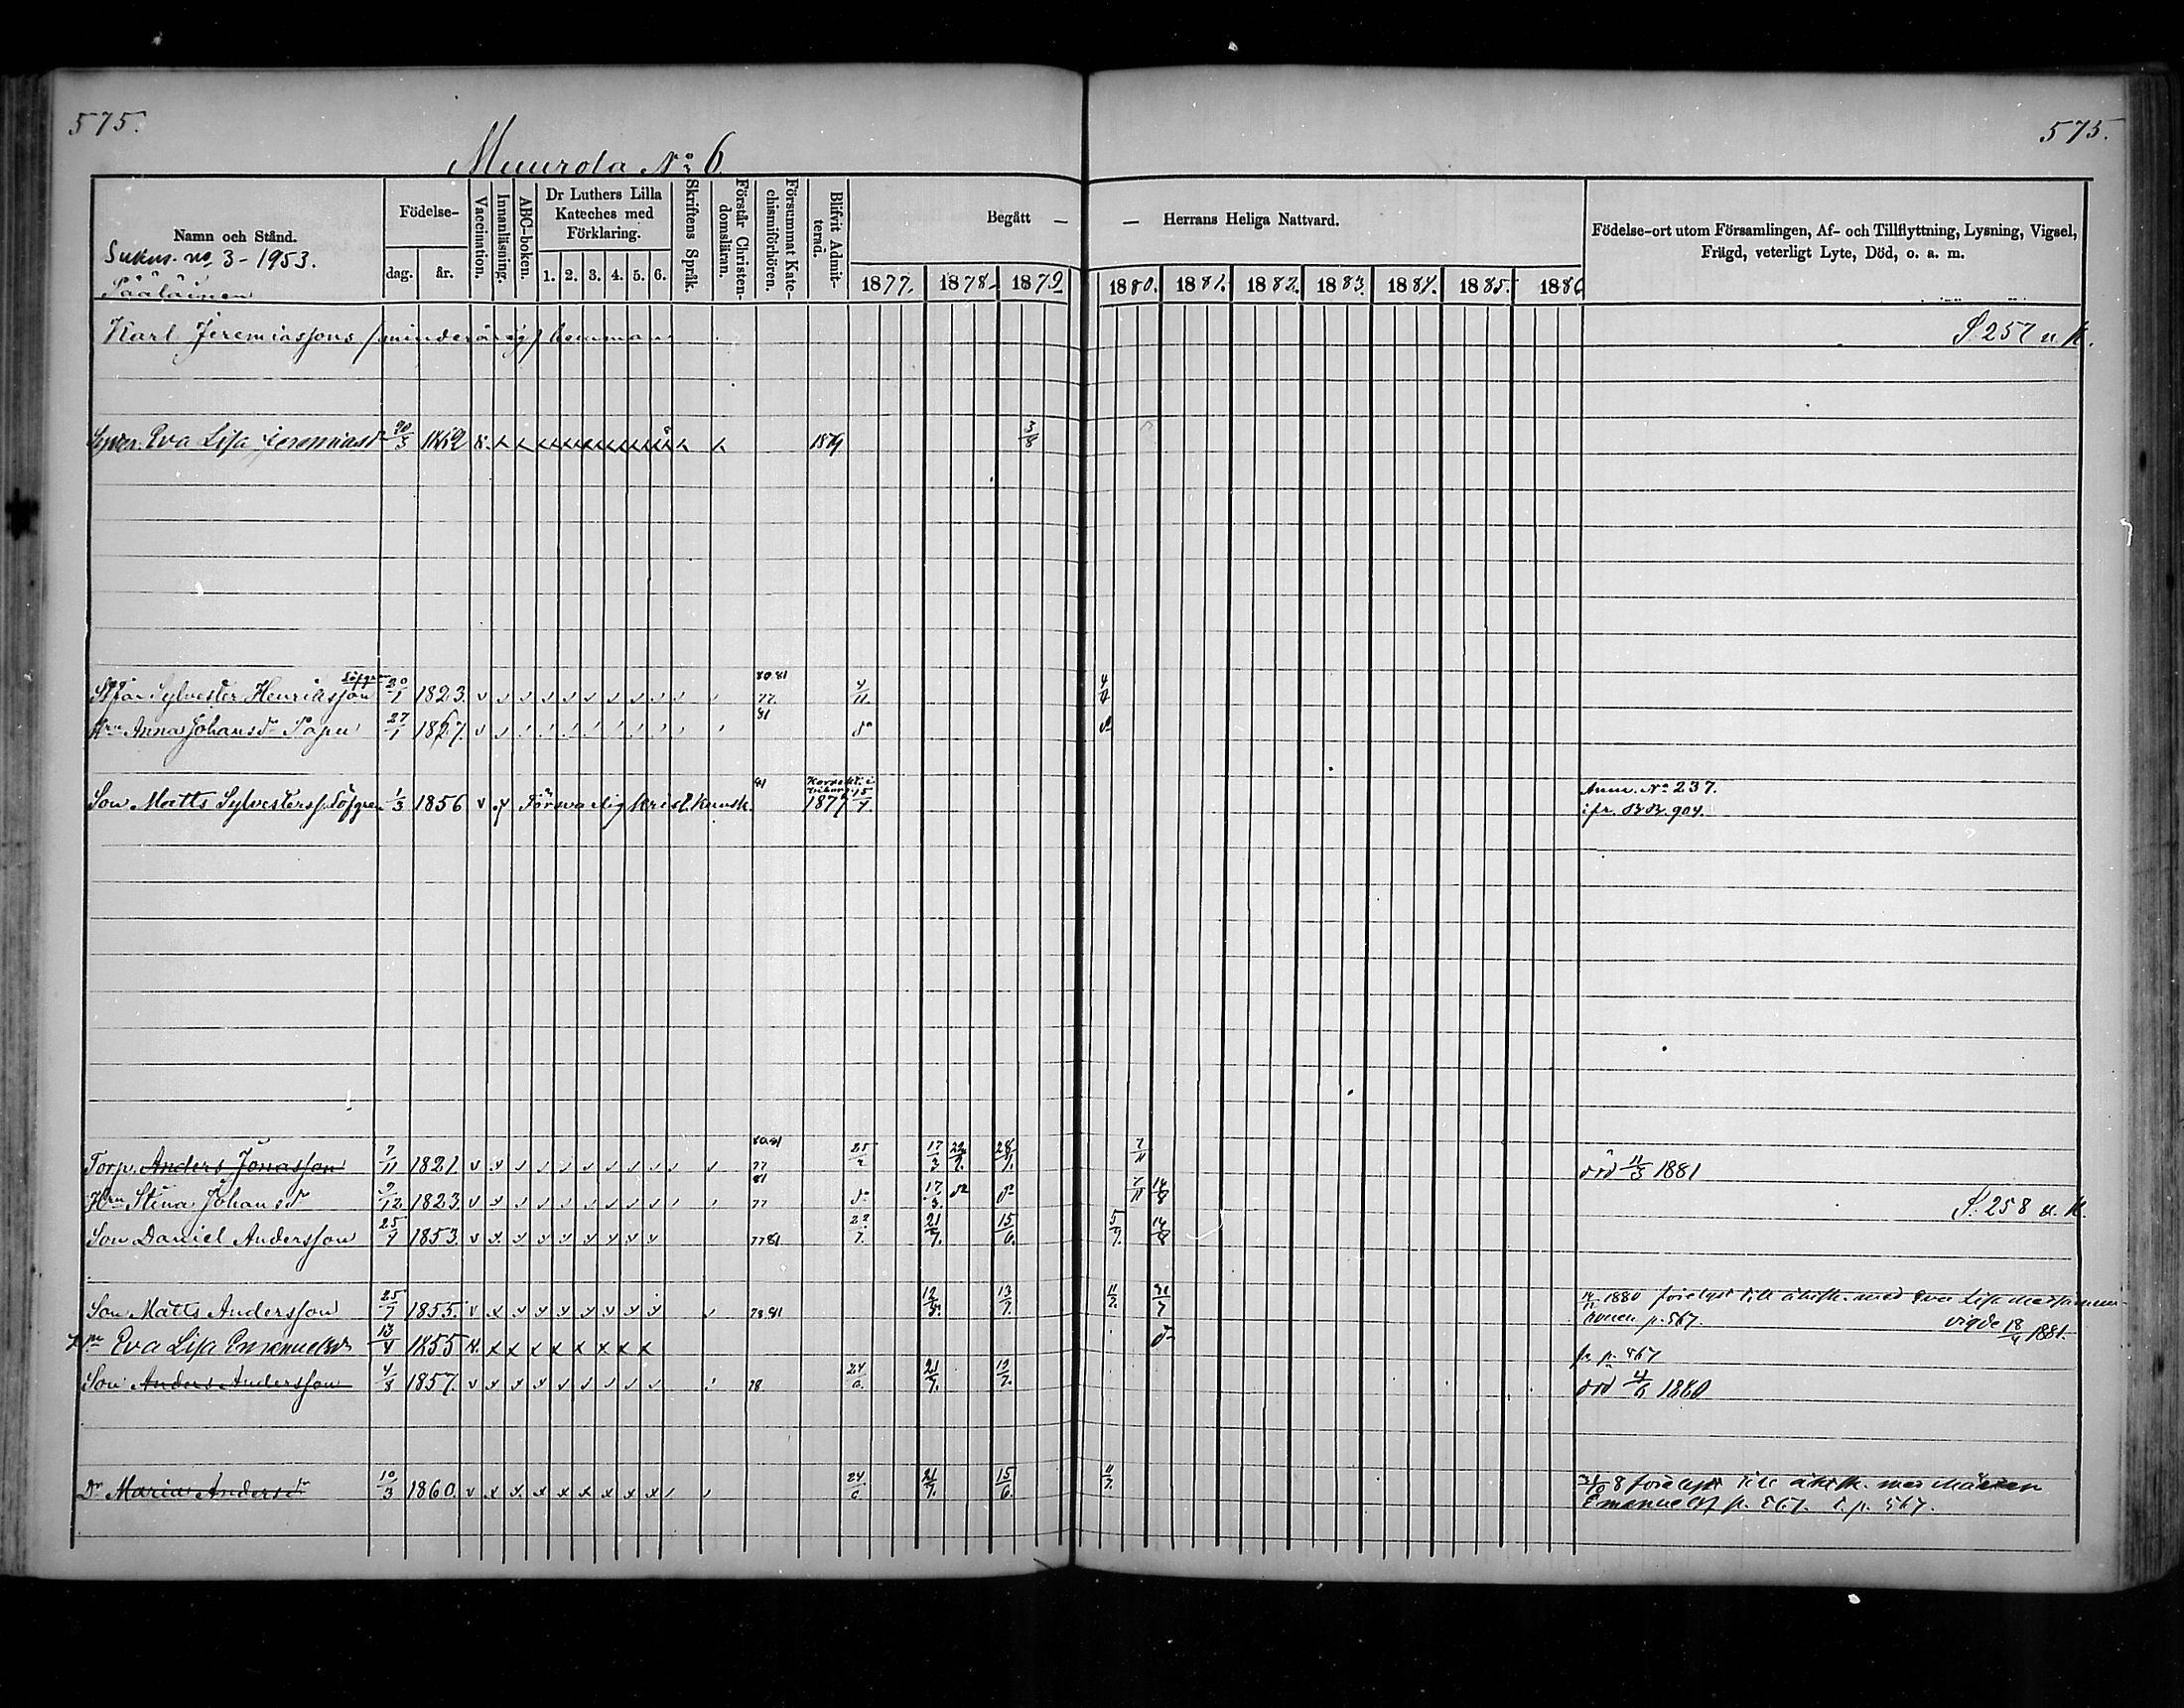 575.
575.
Muurola No 6.
Namn och Stånd.
Sukus. no. 3 - 1953.
Sääläinen
Födelse-
dag.
år.
Vaccination.
Innanläsning.
ABC-boken.
Dr Luthers Lilla
Kateches med
Förklaring.
1. 2. 3. 4. 5. 6.
Skriftens Språk.
Förstår Christen-
domsläran.
Försummat Kate-
chismiförhören.
Blifvit Admit-
terad.
Begått —
— Herrans Heliga Nattvard.
1877. 1878. 1879
1880. 1881. 1882. 1883. 1884. 1885. 1886
Födelse-ort utom Församlingen, Af- och Tillflyttning, Lysning, Vigsel,
Frägd, veterligt Lyte, Död, o. a. m.
Karl Jeremiassons (minderårig) hemman
S. 257 u. K.
Eva Lisa Jeremiasdr 20/3 1862 1879 3/8
80 81
Sylvester Henriksson Löfgren 20/1 1823. 77. 4/11. 4/4
81
Hru Anna Johansdr Papu 27/1 1827. do do
81
Son Matts Sylvesters. Löfgren 1/3 1856 v Försvarlig krist. kunsk. 1877 15/7.
Anm. No 237.
ifr. B.B. 904.
80.81
Torp. Anders Jonasson 7/11 1821 77 25/2 17/3 22/9. 28/9. 7/11
död 11/3 1881
81
Hru Stina Johansdr 9/12 1823. 77 do 17/3. do do 7/11 14/8
S. 258 u. K.
Son Daniel Andersson 25/7 1853. 77 81 22/7. 21/7. 15/6. 5/9. 14/8
Son Matts Andersson 25/7 1855. 78.81 12/8. 13/7. 11/7. 31/7
1880 förelyst till äktsk. med Eva Lisa
p. 567. vigde 18/4 1881.
Eva Lisa Emanuelsdr 13/4 1855 do
fr. p. 567
Son Anders Andersson 4/8 1857. 78 24/6. 21/7. 12/7.
död 4/6 1880
Dr Maria Andersdr 10/3 1860. 24/6 21/7. 15/6. 11/7.
förelyst till äktsk. med
Emanuelss. p. 567. t. p. 567.